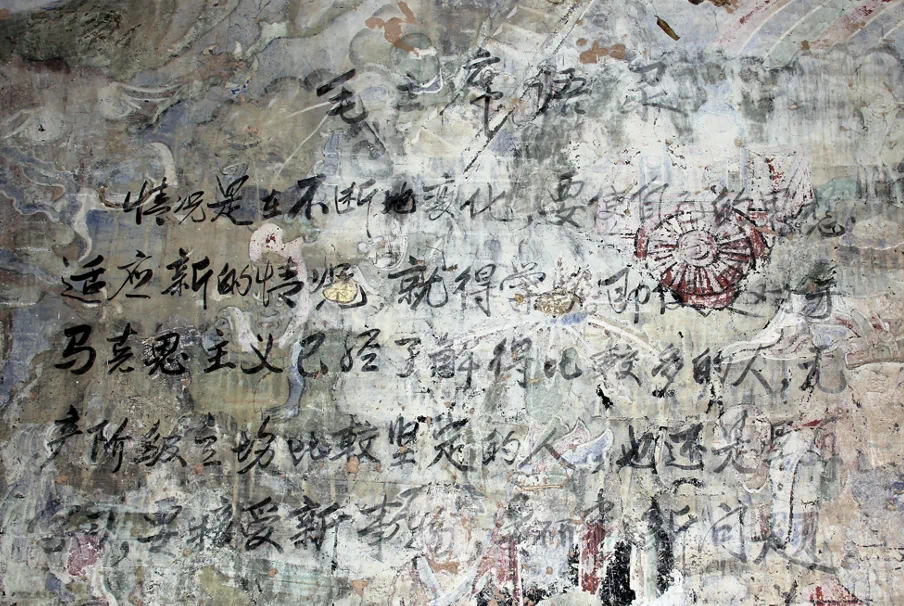 毛主席语录
情况是在不断地变化,要使自己的思想
适应新的情况 就得学习 即使
马克思主义已经了解得比较多的人,无
产阶级立场比较坚定的人,也还是要再
学习,要接受新事物,要研究新问题